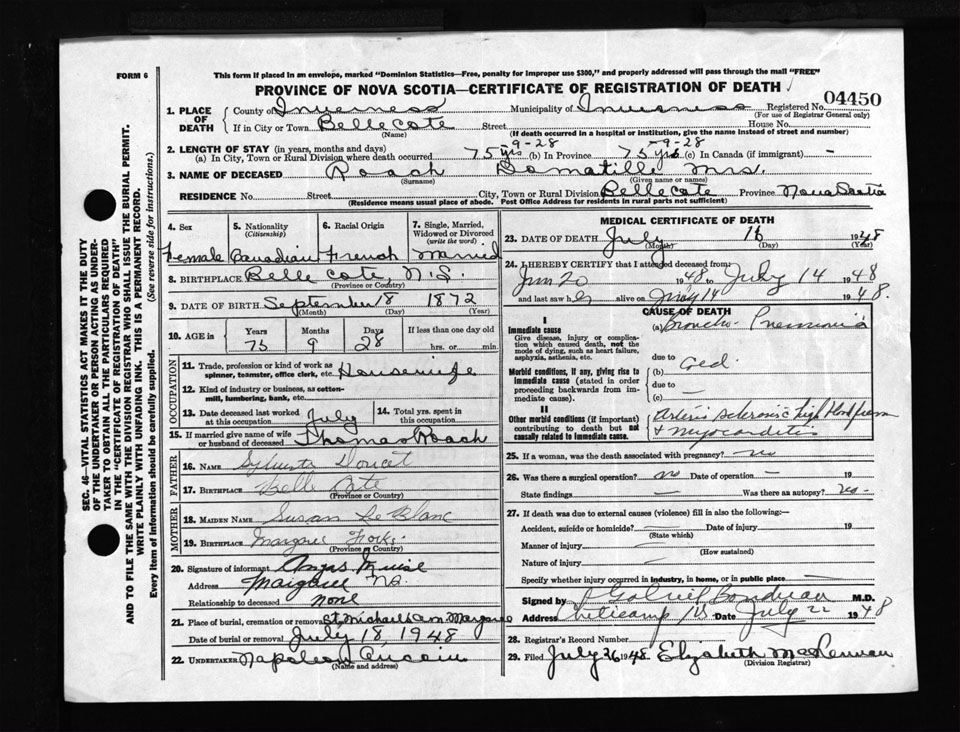 FORM 6
This form if placed in an envelope, marked "Dominion Statistics—Free, penalty for improper use $300," and properly addressed will pass through the mail "FREE"
PROVINCE OF NOVA SCOTIA—CERTIFICATE OF REGISTRATION OF DEATH
04450
1. PLACE OF DEATH
County of Inverness Municipality of Inverness Registered No.
(For use of Registrar General only)
If in City or Town Belle Cote Street House No.
(Name) (If death occurred in a hospital or institution, give the name instead of street and number)
2. LENGTH OF STAY (in years, months and days)
(a) In City, Town or Rural Division where death occurred 75 yrs -9-28 (b) In Province 75 yrs -9-28 (c) In Canada (if immigrant) —
3. NAME OF DECEASED Roach Domatille Mrs.
(Surname) (Given name or names)
RESIDENCE No. Street City, Town or Rural Division Belle Cote Province Nova Scotia
(Residence means usual place of abode. Post Office Address for residents in rural parts not sufficient)
SEC. 46—VITAL STATISTICS ACT MAKES IT THE DUTY
OF THE UNDERTAKER OR PERSON ACTING AS UNDER-
TAKER TO OBTAIN ALL THE PARTICULARS REQUIRED
IN THE "CERTIFICATE OF REGISTRATION OF DEATH"
AND TO FILE THE SAME WITH THE DIVISION REGISTRAR WHO SHALL ISSUE THE BURIAL PERMIT.
WRITE PLAINLY WITH UNFADING INK. THIS IS A PERMANENT RECORD.
Every item of information should be carefully supplied. (See reverse side for instructions.)
4. Sex
Female
5. Nationality
(Citizenship)
Canadian
6. Racial Origin
French
7. Single, Married, Widowed or Divorced
(write the word)
Married
8. BIRTHPLACE Belle Cote, N.S.
(Province or Country)
9. DATE OF BIRTH September 18 1872
(Month) (Day) (Year)
10. AGE in
Years Months Days If less than one day old
75 9 28 hrs. or min.
OCCUPATION
11. Trade, profession or kind of work as
spinner, teamster, office clerk, etc. Housewife
12. Kind of industry or business, as cotton-
mill, lumbering, bank, etc.
13. Date deceased last worked
at this occupation July
14. Total yrs. spent in
this occupation
15. If married give name of wife
or husband of deceased Thomas Roach
FATHER
16. NAME Sylvester Doucet
17. BIRTHPLACE Belle Cote
(Province or Country)
MOTHER
18. MAIDEN NAME Susan Le Blanc
19. BIRTHPLACE Margaree Forks
(Province or Country)
20. Signature of informant Angus Muise
Address Margaree NS.
Relationship to deceased none
21. Place of burial, cremation or removal St. Michaels Margaree
Date of burial or removal July 18, 1948
22. UNDERTAKER Napoleon Aucoin
(Name and address)
MEDICAL CERTIFICATE OF DEATH
23. DATE OF DEATH July 16 1948
(Month) (Day) (Year)
24. I HEREBY CERTIFY that I attended deceased from:
Jun 20 1948 to July 14 1948
and last saw her alive on July 14 1948.
CAUSE OF DEATH
I
Immediate cause
Give disease, injury or complica-
tion which caused death, not the
mode of dying, such as heart failure,
asphyxia, asthenia, etc.
(a) Broncho-Pneumonia
due to
Morbid conditions, if any, giving rise to
immediate cause (stated in order
proceeding backwards from im-
mediate cause).
(b)
due to
(c) —
II
Other morbid conditions (if important)
contributing to death but not
causally related to immediate cause.
Arterio Sclerosis High blood pressure
+ Myocarditis
25. If a woman, was the death associated with pregnancy? no
26. Was there a surgical operation? no Date of operation — 19
State findings — Was there an autopsy? no
27. If death was due to external causes (violence) fill in also the following:—
Accident, suicide or homicide? — Date of injury 19
(State which)
Manner of injury —
(How sustained)
Nature of injury —
Specify whether injury occurred in industry, in home, or in public place —
Signed by Gabriel Boudreau M.D.
Address Cheticamp NS Date July 22 1948
28. Registrar's Record Number
29. Filed July 26 1948 Elizabeth MacLennan
(Division Registrar)